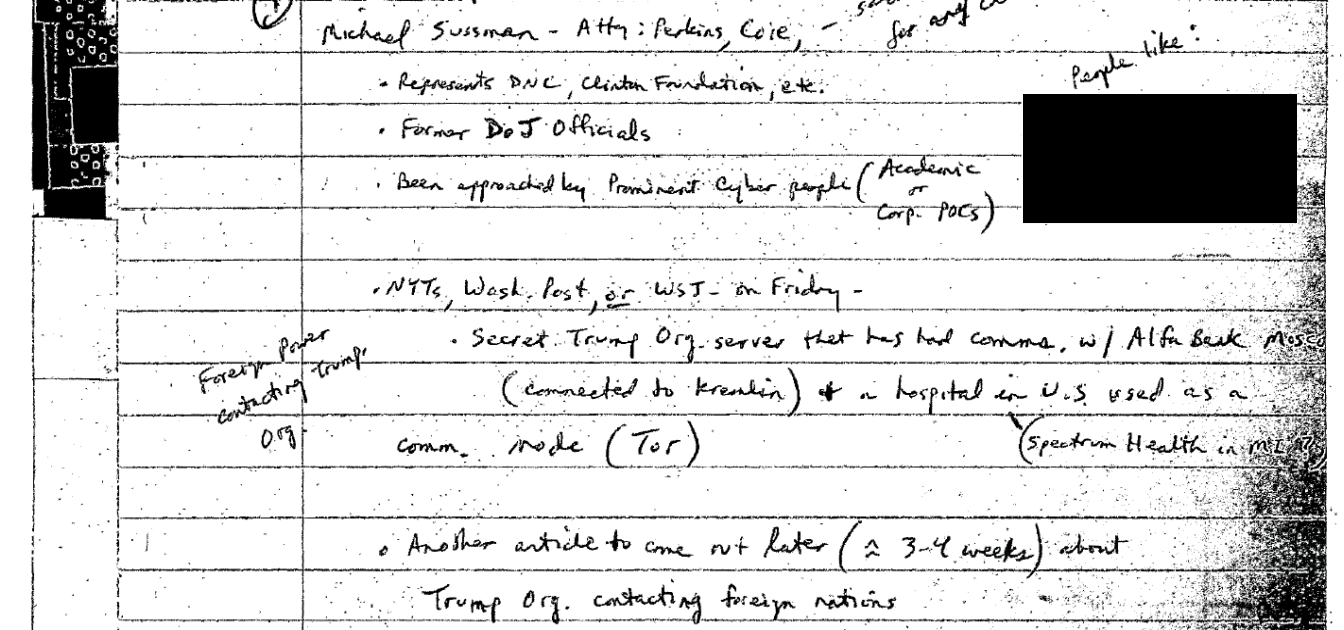 Michael Sussman - Atty: Perkins, Coie, -
for any
People like:
• Represents DNC, Clinton Foundation, etc.
• Former DoJ Officials
• Been approached by Prominent Cyber people (Academic
or
Corp. POCs)
• NYTs, Wash. Post, or WSJ - on Friday -
• Secret Trump Org. server that has had comms. w/ Alfa Bank Mosco
(connected to Kremlin) + a hospital in U.S. used as a
comm. node (Tor)
(Spectrum Health in MI?)
Foreign Power
contacting Trump.
Org
• Another article to come out later (≈ 3-4 weeks) about
Trump Org. contacting foreign nations